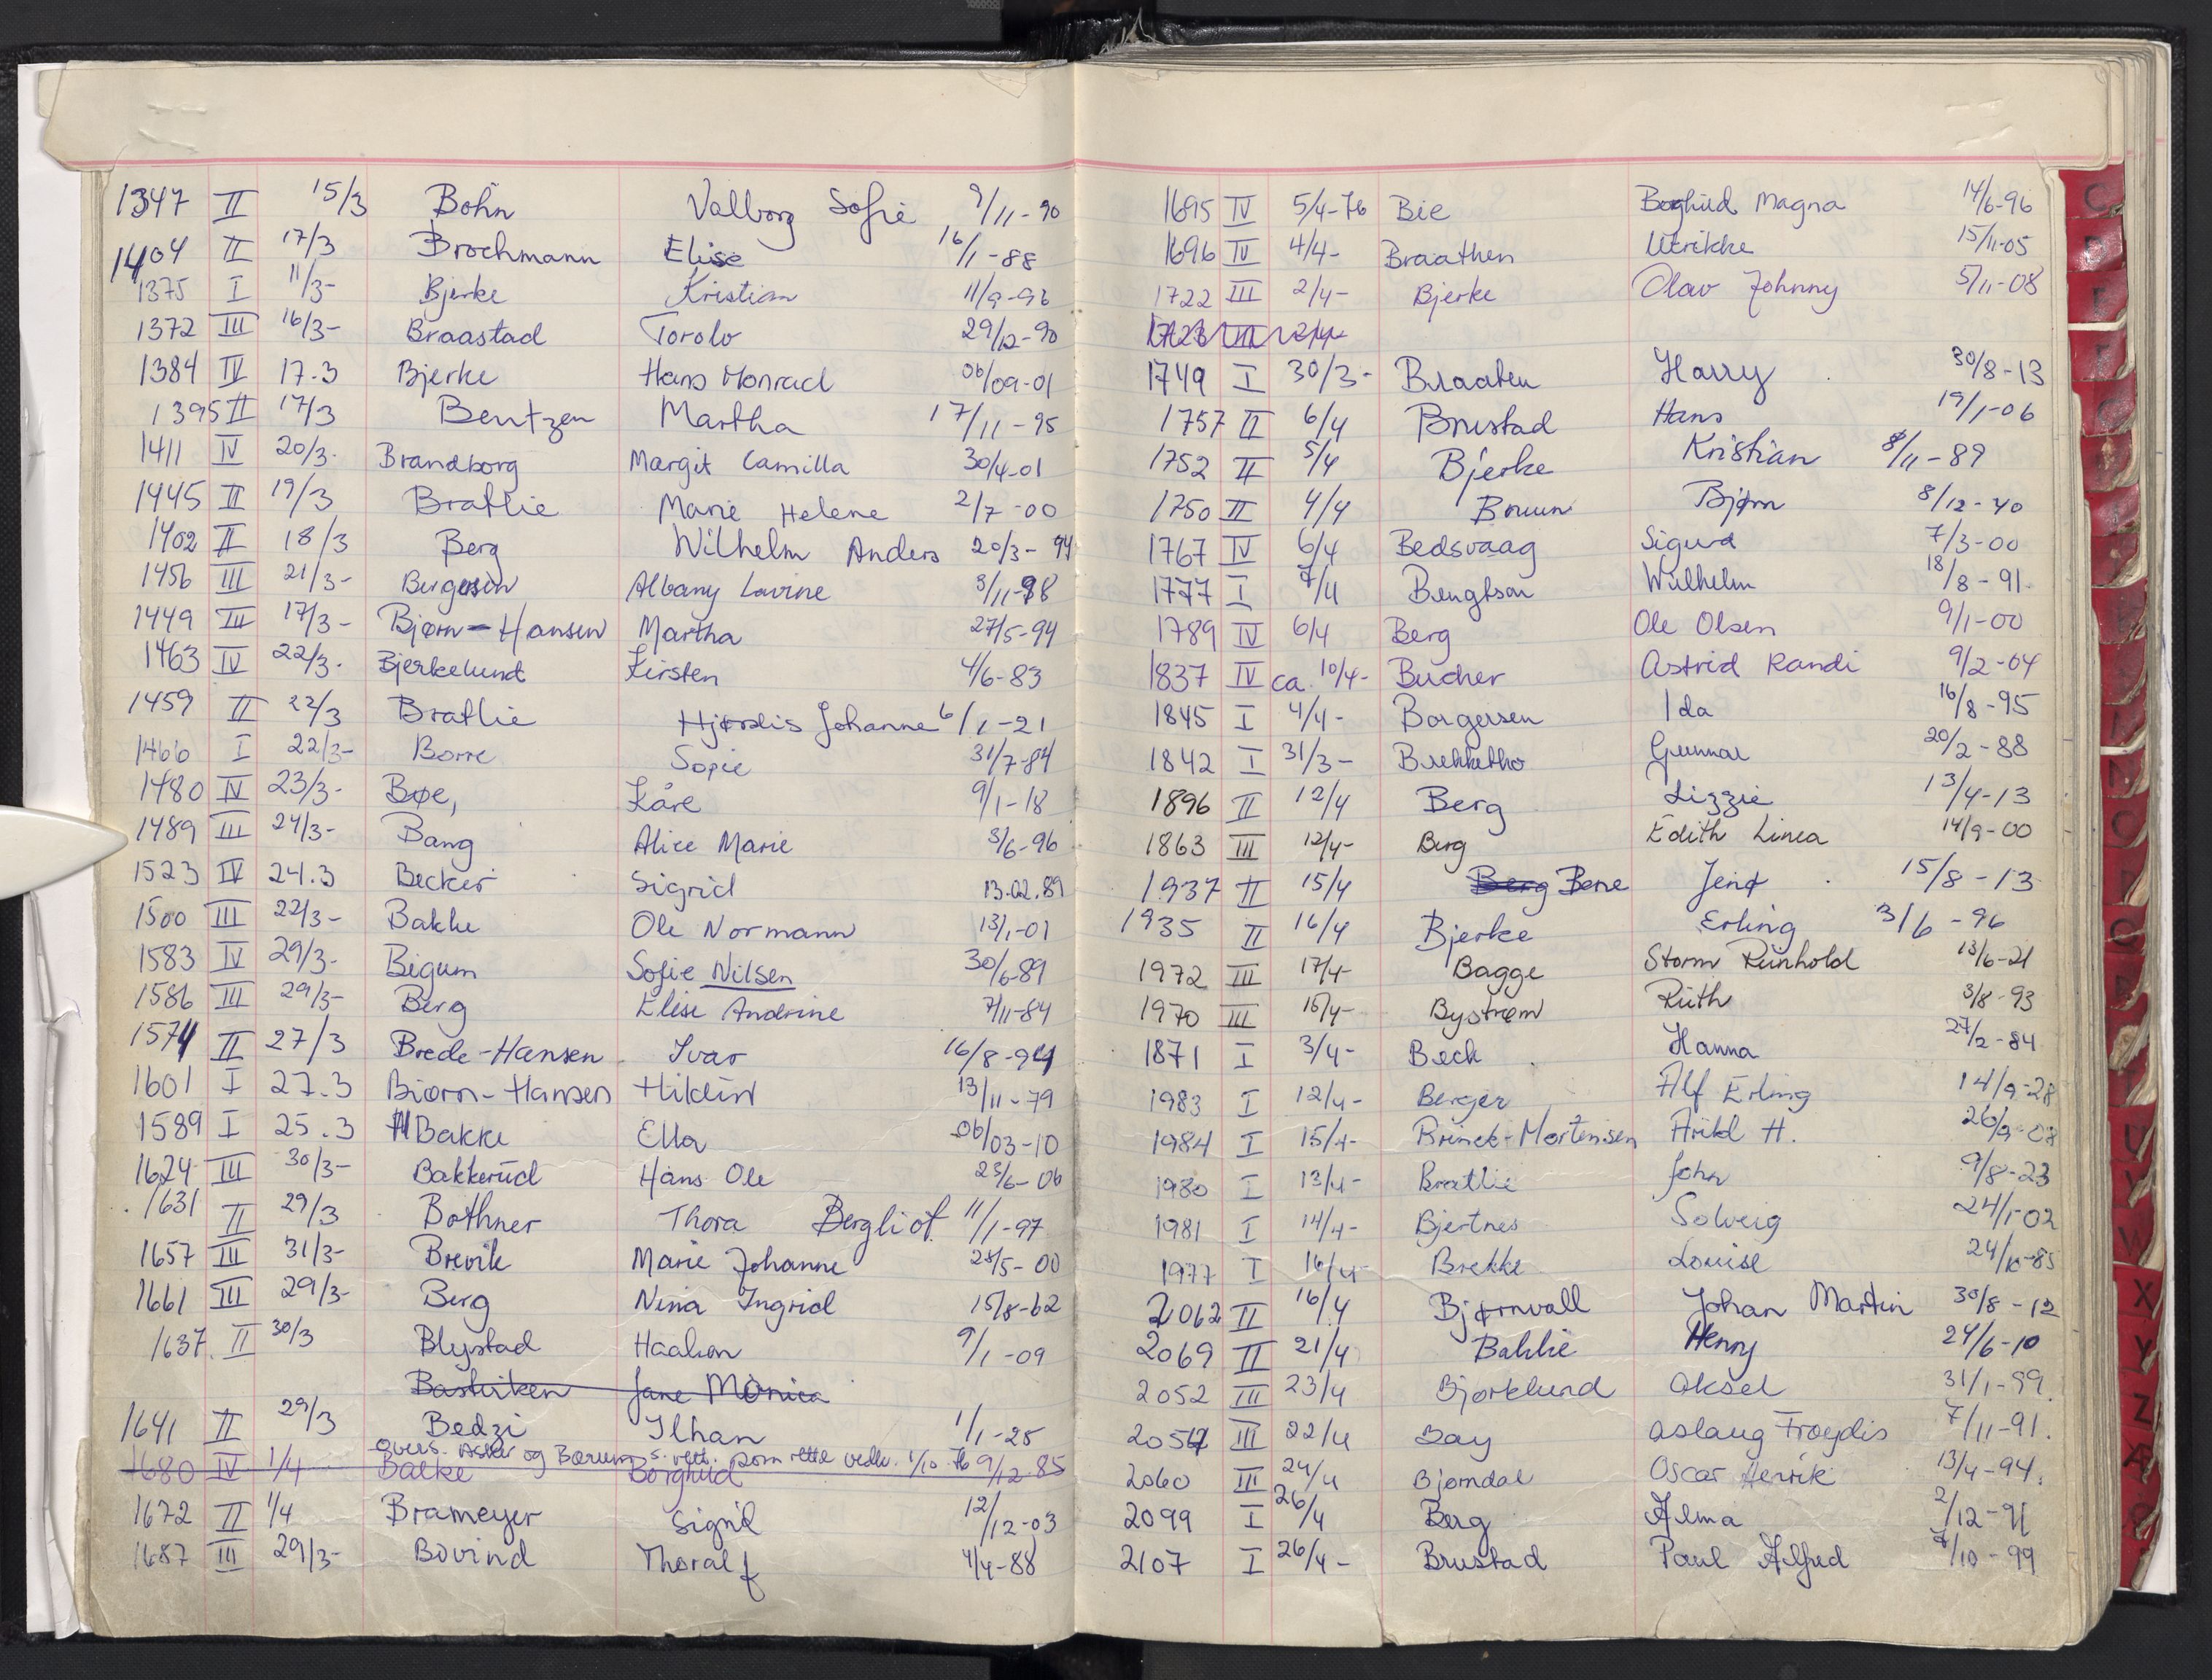 1347 II 15/3 Bohn Valborg Sofie 9/11-90
1404 II 17/3 Brochmann Elise 16/1-88
1375 I 11/3- Bjerke Kristian 11/9-96
1372 III 16/3- Braastad Torolv 29/12-90
1384 IV 17.3 Bjerke Hans Monrad 06/09-01
1395 II 17/3 Bentzen Martha 17/11-95
1411 IV 20/3. Brandborg Margit Camilla 30/4-01
1445 II 19/3 Bratlie Marie Helene 2/7-00
1402 II 18/3 Berg Wilhelm Anders 20/3-94
1456 III 21/3- Birgersen Albany Lovine 3/11-98
1449 III 17/3- Bjørn-Hansen Martha 27/5-94
1463 IV 22/3. Bjerkelund Kirsten 4/6-83
1459 II 22/3 Bratlie Hjørdis Johanne 6/1-21
1466 I 22/3- Borre Sofie 31/7-84
1480 IV 23/3- Bøe, Kåre 9/1-18
1489 III 24/3- Bang Alice Marie 3/6-96
1523 IV 24.3 Becker Sigrid 13.02.89
1500 III 22/3- Bakke Ole Normann 13/1-01
1583 IV 29/3- Bigum Sofie Nilsen 30/6-89
1586 III 29/3- Berg Elise Andrine 7/11-84
1574 II 27/3 Brede-Hansen Ivar 16/8-94
1601 I 27.3 Biørn-Hansen Hildur 13/11-79
1589 I 25.3 Bakke Ella 06/03-10
1624 III 30/3- Bakkerud Hans Ole 23/6-06
1631 II 29/3 Bothner Thora Bergliot 11/1-97
1657 III 31/3- Brevik Marie Johanne 28/5-00
1661 III 29/3- Berg Nina Ingrid 15/8-62
1637. II 30/3 Blystad Haakon 9/1-09
Bastirken Jane Monica
1641 II 29/3 Bedzi Ilhan 1/1-25
overs. Asker og Bærum s. rett. som rette vedk. 1/10-76
1680 IV 1/4 Bakke Borghild 9/12-85
1672 II 1/4 Brameyer Sigrid 12/12-03
1687 III 29/3- Bovind Thoralf 4/4-88
1695 IV 5/4-76 Bie Borghild Magna 14/6-96
1696 IV 4/4- Braathen Ulrikke 15/11-05
1722 III 2/4- Bjerke Olav Johnny 5/11-08
1723 VIII 2/4-
1749 I 30/3- Braaten Harry 30/8-13
1757 II 6/4 Brustad Hans 19/1-06
1752 II 5/4 Bjerke Kristian 8/11-89
1750 II 4/4 Bruun Bjørn 8/12-40
1767 IV 6/4 Bedsvaag Sigurd 7/3-00
1777 I 7/4 Bengtson Wilhelm 18/8-91.
1789 IV 6/4 Berg Ole Olsen 9/1-00
1837 IV ca. 10/4- Bucher Astrid Randi 9/2-04
1845 I 4/4- Borgersen Ida 16/8-95
1842 I 31/3- Brekketho Gunnar 20/2-88
1896 II 12/4 Berg Lizzie 13/4-13
1863 III 12/4- Berg Edith Linea 14/9-00
1937 II 15/4 Berg Bene Jenø 15/8-13
1935 II 16/4 Bjerke Erling 3/6-96
1972 III 17/4- Bagge Storm Reinhold 13/6-21
1970 III 15/4- Bystrøm Ruth 3/8-93
1871 I 3/4- Beck Hanna 27/2-84
1983 I 12/4- Berger Alf Erling 14/9-28
1984 I 15/4- Brinck-Mortensen Arild H. 26/9-08
1980 I 13/4- Bratlie John 9/8-23
1981 I 14/4- Bjertnes Solveig 24/1-02
1977 I 16/4- Brekke Louise 24/10-85
2062 II 16/4 Bjørnvall Johan Martin 30/8-12
2069 II 21/4 Bakke Henry 24/6-10
2052 III 23/4 Bjørklund Aksel 31/1-99.
2057 III 22/4 Bay Aslaug Frøydis 7/11-91.
2060 III 24/4 Bjørndal Oscar Henrik 13/4-94.
2099 I 26/4 Berg Alma 2/12-91
2107 I 26/4- Brustad Paul Alfred 7/10-99
C
U
V
W
X
Y
Z